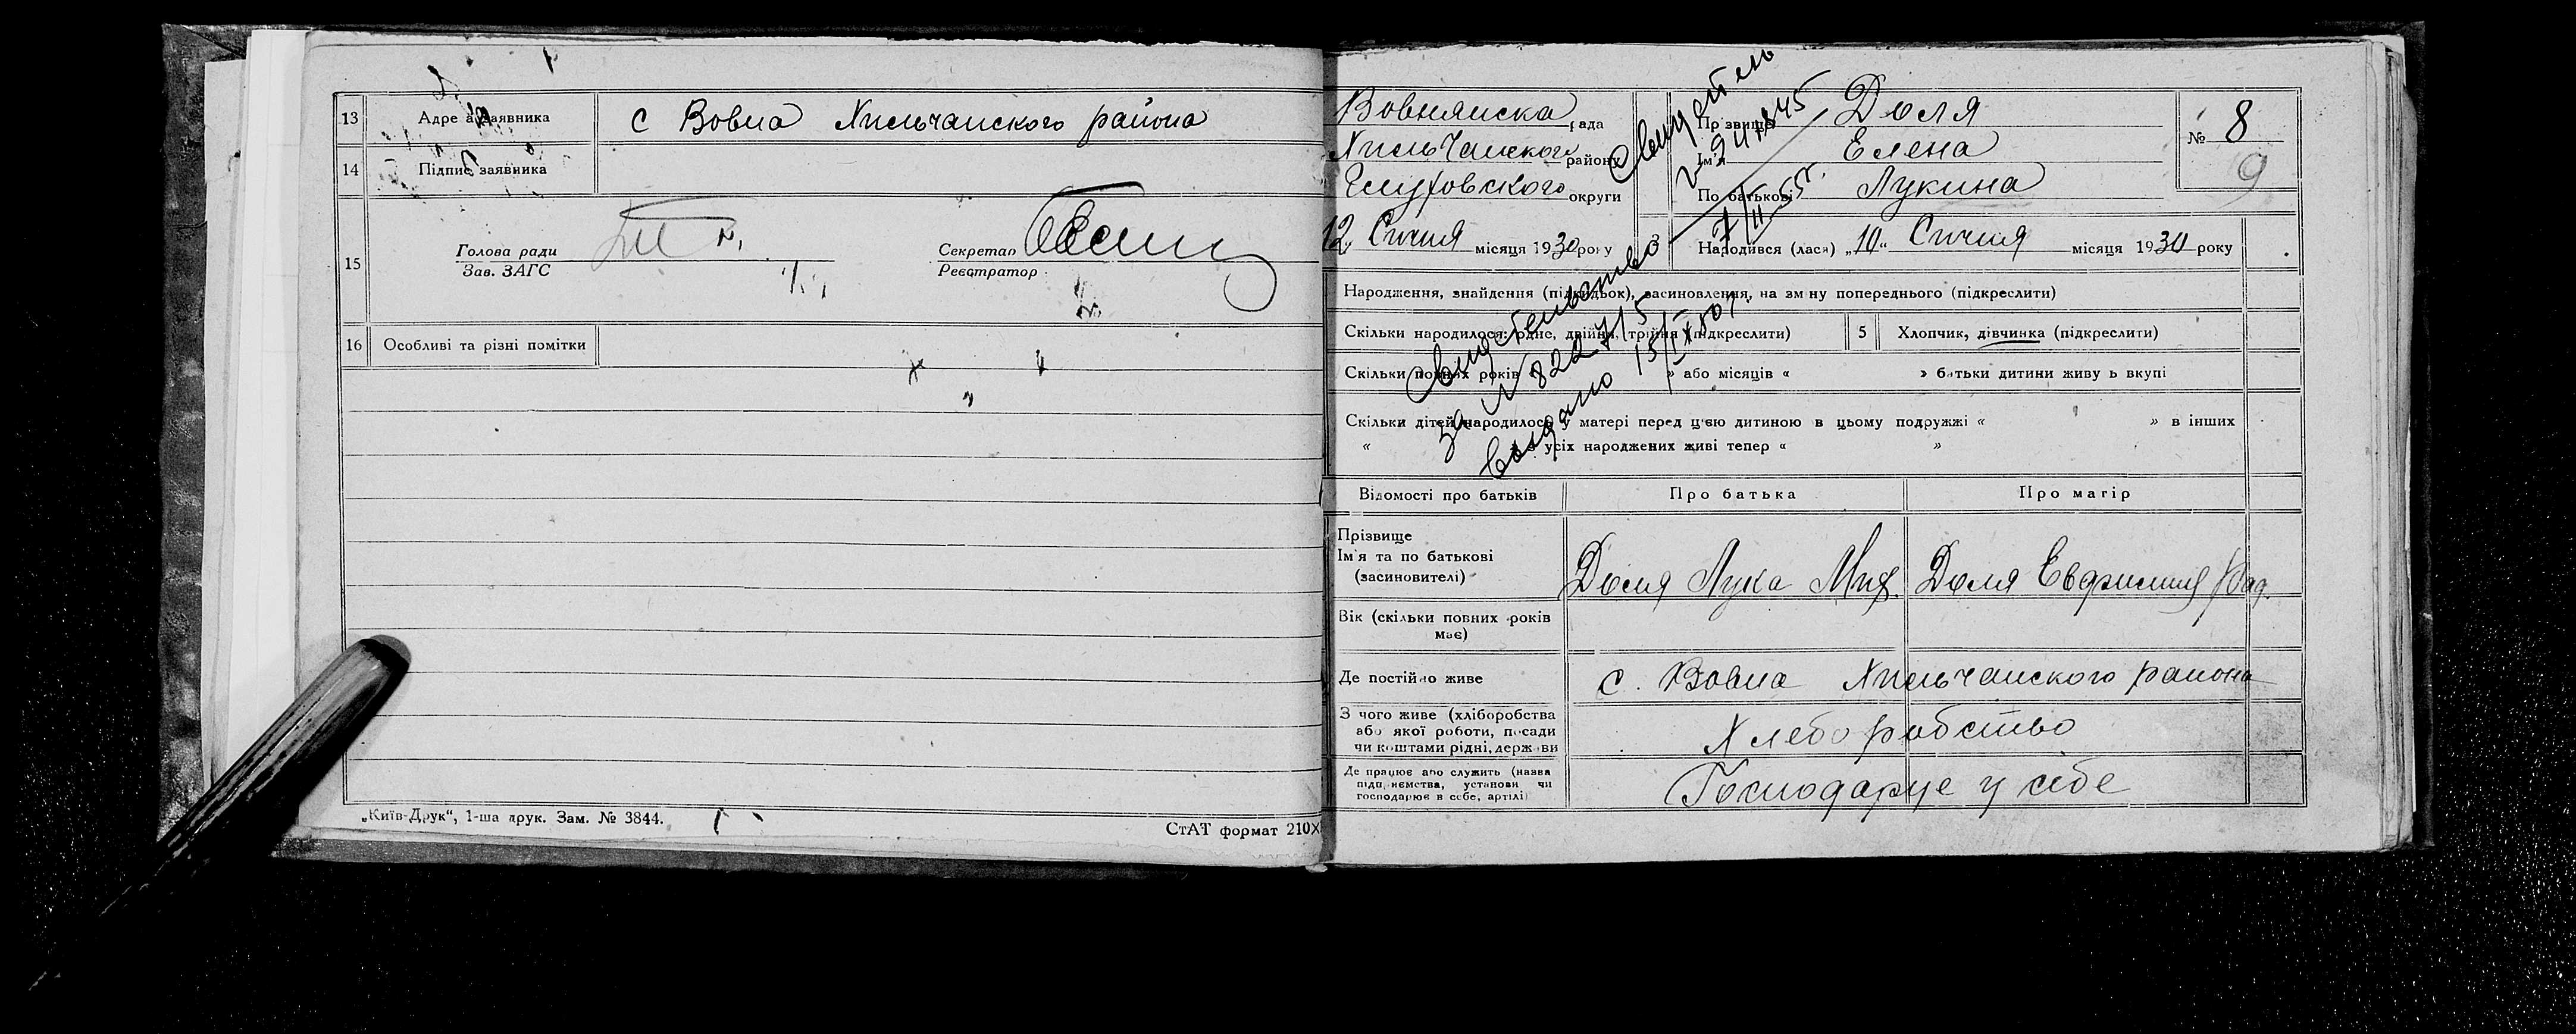 13 Адре а заявника с Вовна Хильчанского района
14 Підпис заявника
15 Голова ради
Зав. ЗАГС
Секретар
Реєстратор
16 Особливі та різні помітки
„Київ-Друк“, 1-ша друк. Зам. № 3844.
СтАТ формат 210X
Вовнянска рада
Хильчанского району
Глуховского округи
12 Січня місяця 1930 року
Прізвище Доля
Ім'я Елена
По батькові Лукина
№ 8
9
3 Народився (лася) „10“ Січня місяця 1930 року
Народження, знайдення (підкидьок), засиновлення, на зміну попереднього (підкреслити)
Скільки народилося: одне, двійня, трійня (підкреслити) 5 Хлопчик, дівчинка (підкреслити)
Скільки повних років » або місяців « » батьки дитини живуть вкупі
Скільки дітей народилось у матері перед цією дитиною в цьому подружжі « » в інших
« з усіх народжених живі тепер « »
Свидетельство
за № 822715
выдано 15/IX 50г
Свидетель
№ 941845
7/II-55г.
Відомості про батьків Про батька Про матір
Прізвище
Ім'я та по батькові
(засновителі) Доля Лука Мих. Доля Евфросиния
Вік (скільки повних років
має)
Де постійно живе с. Вовна Хильчанского района
З чого живе (хліборобства
або якої роботи, посади
чи коштами рідні, держави Хлеборобство
Де працює або служить (назва
підприємства, установи чи
господарює в себе, артілі) Господарує у себе